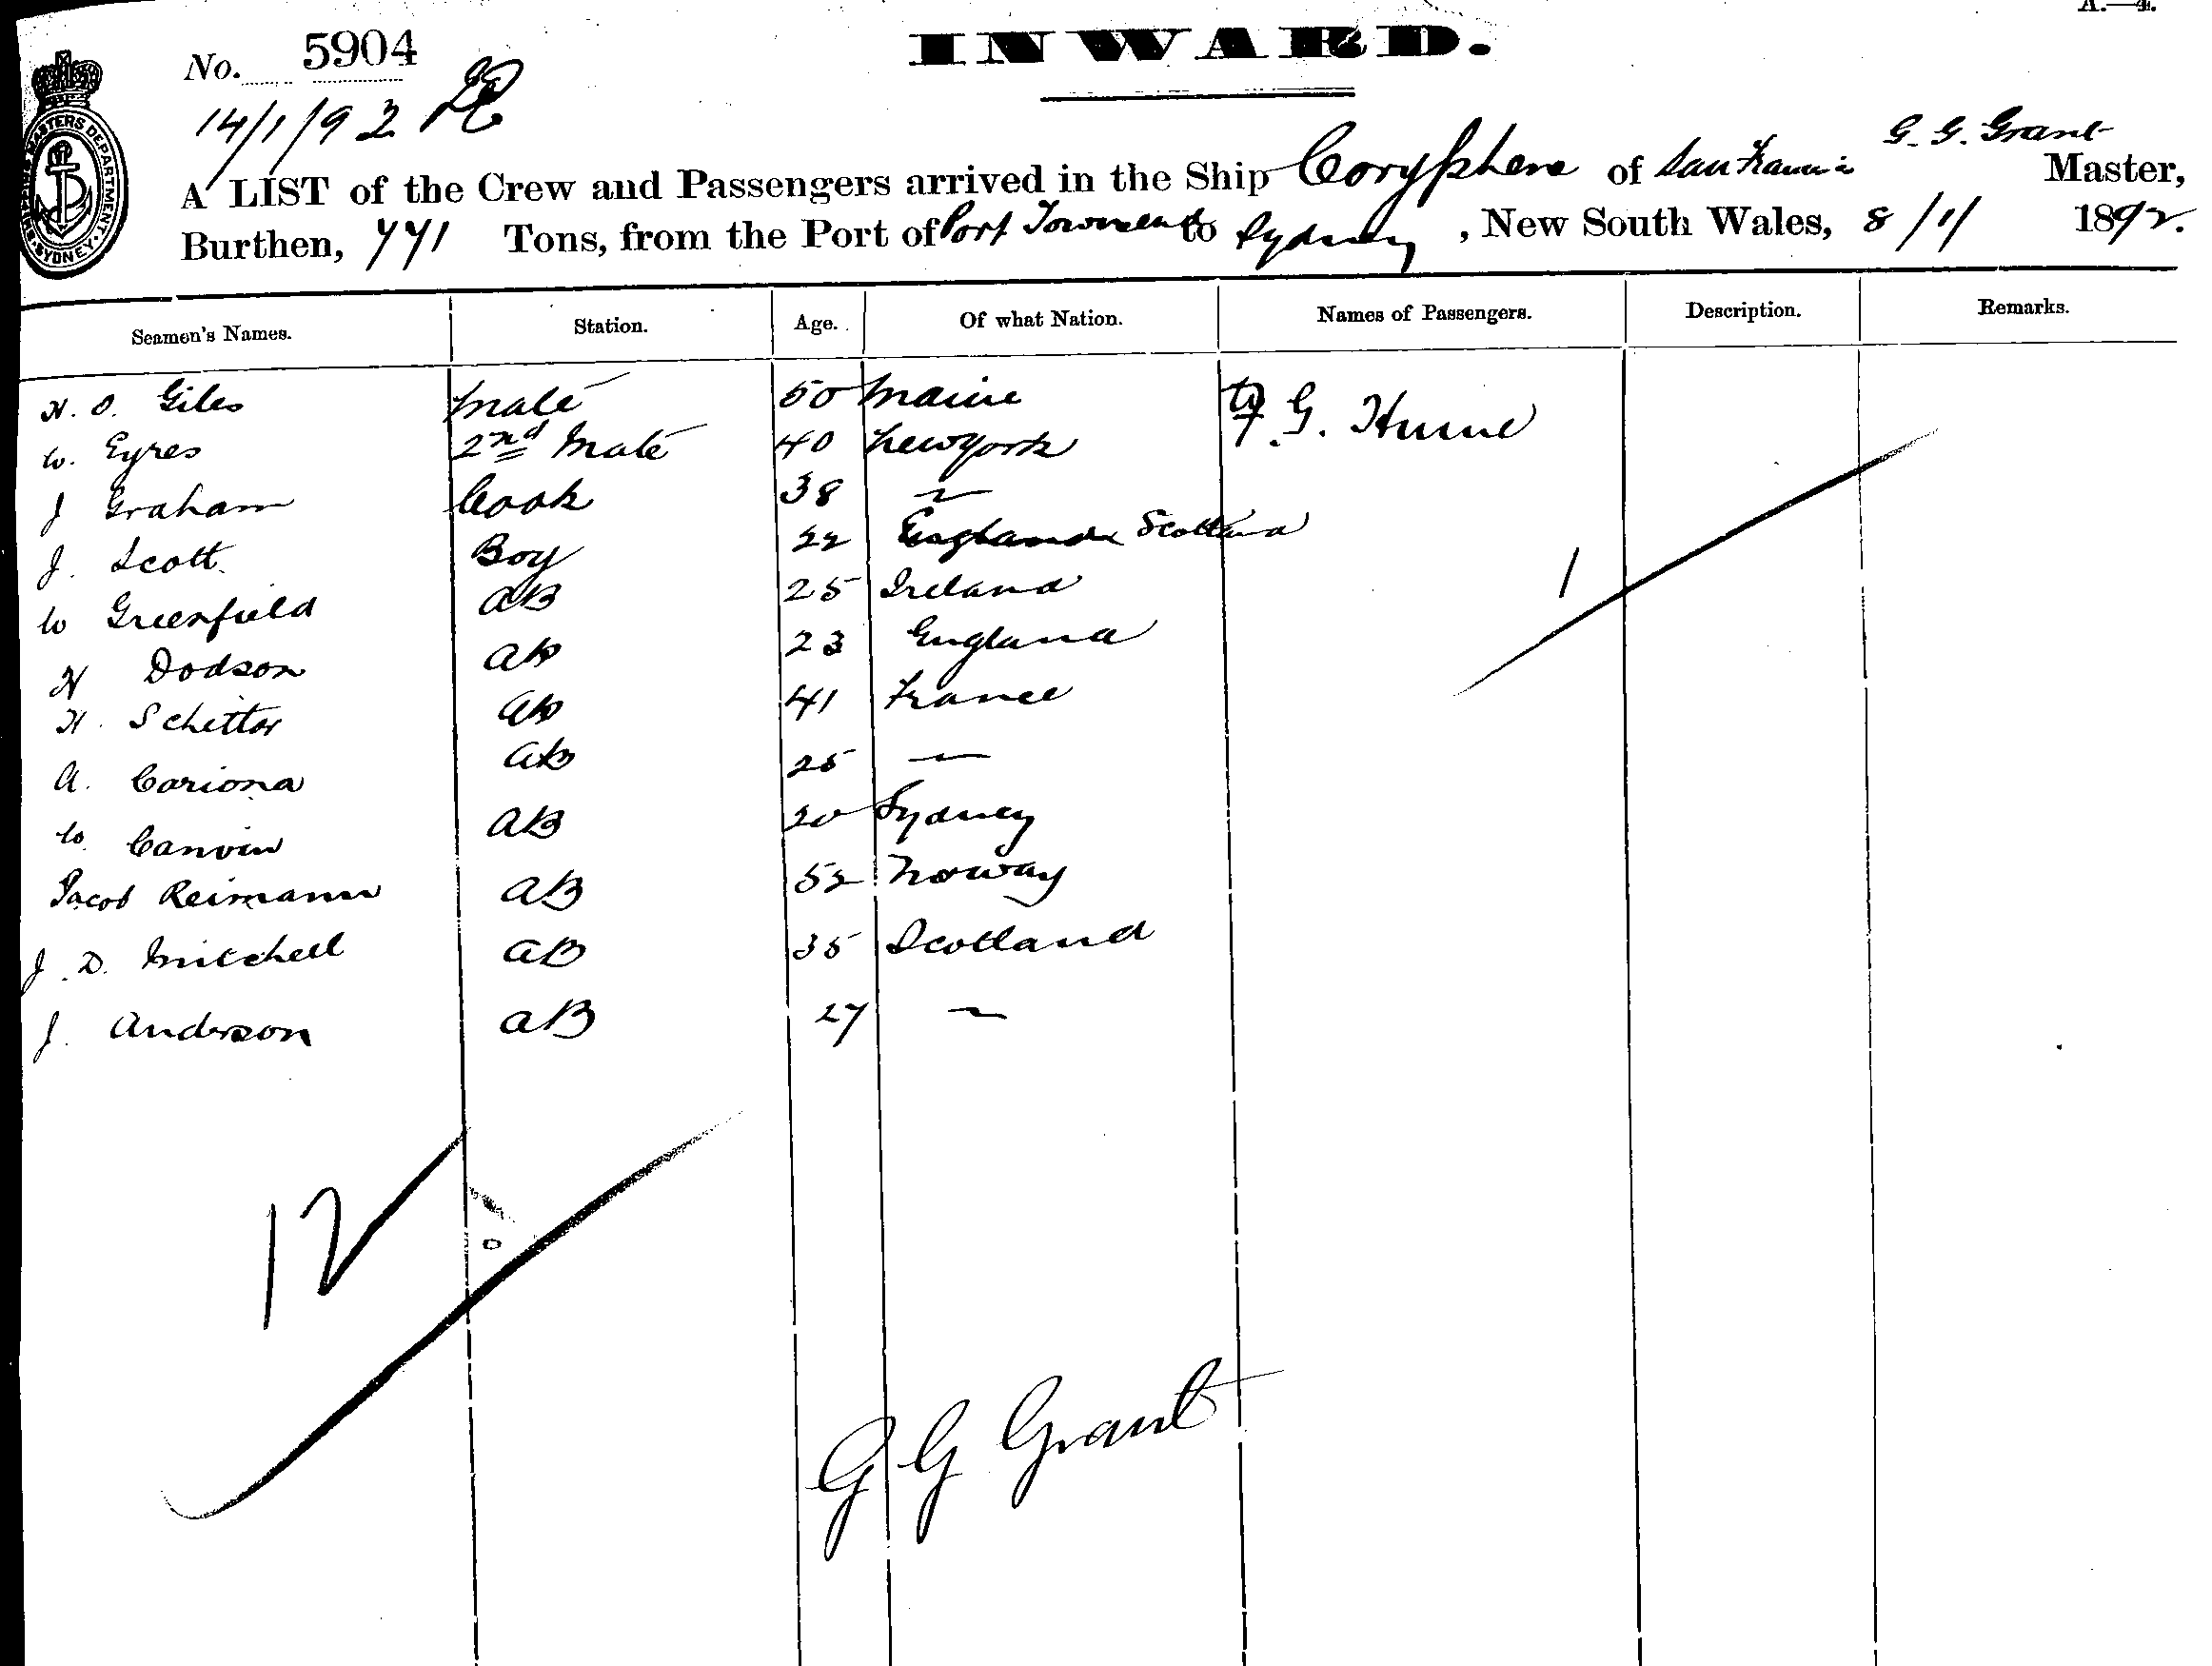 A.—4.
No. 5904
INWARD.
14/1/92
G. G. Grant
A LIST of the Crew and Passengers arrived in the Ship Coryphene of San Francis Master,
Burthen, 771 Tons, from the Port of Port Townsend to Sydney, New South Wales, 8/1/ 1892.
SHIPPING MASTERS DEPARTMENT. SYDNEY.
Seamen's Names. Station. Age. Of what Nation. Names of Passengers. Description. Remarks.
H. O. Giles Mate 50 Maine G. Hume
W. Eyres 2nd Mate 40 New York
J Graham Cook 38 ~
J. Scott Boy 22 England Scotland 1
W Greenfield AB 25 Ireland
H Dodson AB 23 England
H. Schettar AB 41 France
A. Cariona AB 25 —
W. Canvin AB 20 Sydney
Jacob Reimann AB 52 Norway
J. D. Mitchell AB 35 Scotland
J. Anderson AB 27 ~
12
G G Grant